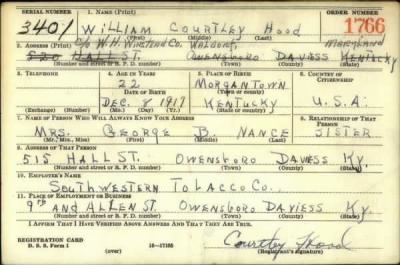 SERIAL NUMBER 1. NAME (Print) ORDER NUMBER
3401 WILLIAM COURTLEY HOOD 1766
(First) (Middle) (Last)
2. ADDRESS (Print) C/O W.H. WINSTEAD CO. WALDORF, MARYLAND
520 HALL ST. OWENSBORO DAVIESS KENTUCKY
(Number and street or R. F. D. number) (Town) (County) (State)
3. TELEPHONE 4. AGE IN YEARS 5. PLACE OF BIRTH 6. COUNTRY OF CITIZENSHIP
22 MORGANTOWN
DATE OF BIRTH (Town or county)
DEC. 8 1917 KENTUCKY U.S.A.
(Exchange) (Number) (Mo.) (Day) (Yr.) (State or country)
7. NAME OF PERSON WHO WILL ALWAYS KNOW YOUR ADDRESS 8. RELATIONSHIP OF THAT PERSON
MRS. GEORGE B. NANCE SISTER
(Mr., Mrs., Miss) (First) (Middle) (Last)
9. ADDRESS OF THAT PERSON
515 HALL ST. OWENSBORO DAVIESS KY.
(Number and street or R. F. D. number) (Town) (County) (State)
10. EMPLOYER'S NAME
SOUTHWESTERN TOBACCO CO.
11. PLACE OF EMPLOYMENT OR BUSINESS
9TH AND ALLEN ST. OWENSBORO DAVIESS KY.
(Number and street or R. F. D. number) (Town) (County) (State)
I AFFIRM THAT I HAVE VERIFIED ABOVE ANSWERS AND THAT THEY ARE TRUE.
REGISTRATION CARD
D. S. S. Form 1 (over) 16—17105 Courtley Hood
(Registrant's signature)